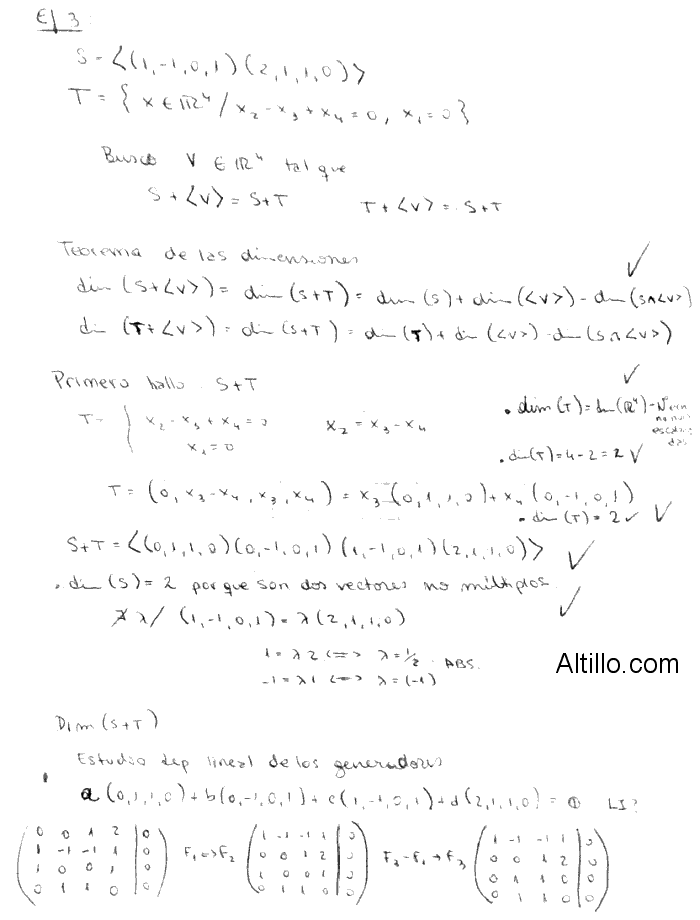 Ej 3
S = <(1,-1,0,1)(2,1,1,0)>
T = { x ∈ ℝ⁴ / x₂ - x₃ + x₄ = 0, x₁ = 0 }
Busco v ∈ ℝ⁴ tal que
S + <v> = S+T   T + <v> = S+T
Teorema de las dimensiones
dim (S+<v>) = dim (S+T) = dim (S) + dim (<v>) - dim (S∩<v>)
dim (T+<v>) = dim (S+T) = dim (T) + dim (<v>) - dim (S∩<v>)
Primero hallo S+T
T = { x₂ - x₃ + x₄ = 0   x₂ = x₃ - x₄
x₁ = 0
. dim (T) = dim (ℝ⁴) - Nº
. dim (T) = 4-2 = 2
T = (0, x₃-x₄, x₃, x₄) = x₃ (0,1,1,0) + x₄ (0,-1,0,1)
. dim (T) = 2
S+T = <(0,1,1,0)(0,-1,0,1)(1,-1,0,1)(2,1,1,0)>
. dim (S) = 2 porque son dos vectores no múltiplos.
∄ λ / (1,-1,0,1) = λ (2,1,1,0)
1 = λ 2 <=> λ = 1/2
-1 = λ 1 <=> λ = (-1)
ABS.
Altillo.com
Dim (S+T)
Estudio dep lineal de los generadores
a (0,1,1,0) + b(0,-1,0,1) + c(1,-1,0,1) + d(2,1,1,0) = 0   LI?
0 0 1 2 | 0   1 -1 -1 1 | 0   1 -1 -1 1 | 0
1 -1 -1 1 | 0   F₁<->F₂   0 0 1 2 | 0   F₃-F₁->F₃   0 0 1 2 | 0
1 0 0 1 | 0   1 0 0 1 | 0   0 1 1 0 | 0
0 1 1 0 | 0   0 1 1 0 | 0   0 1 1 0 | 0